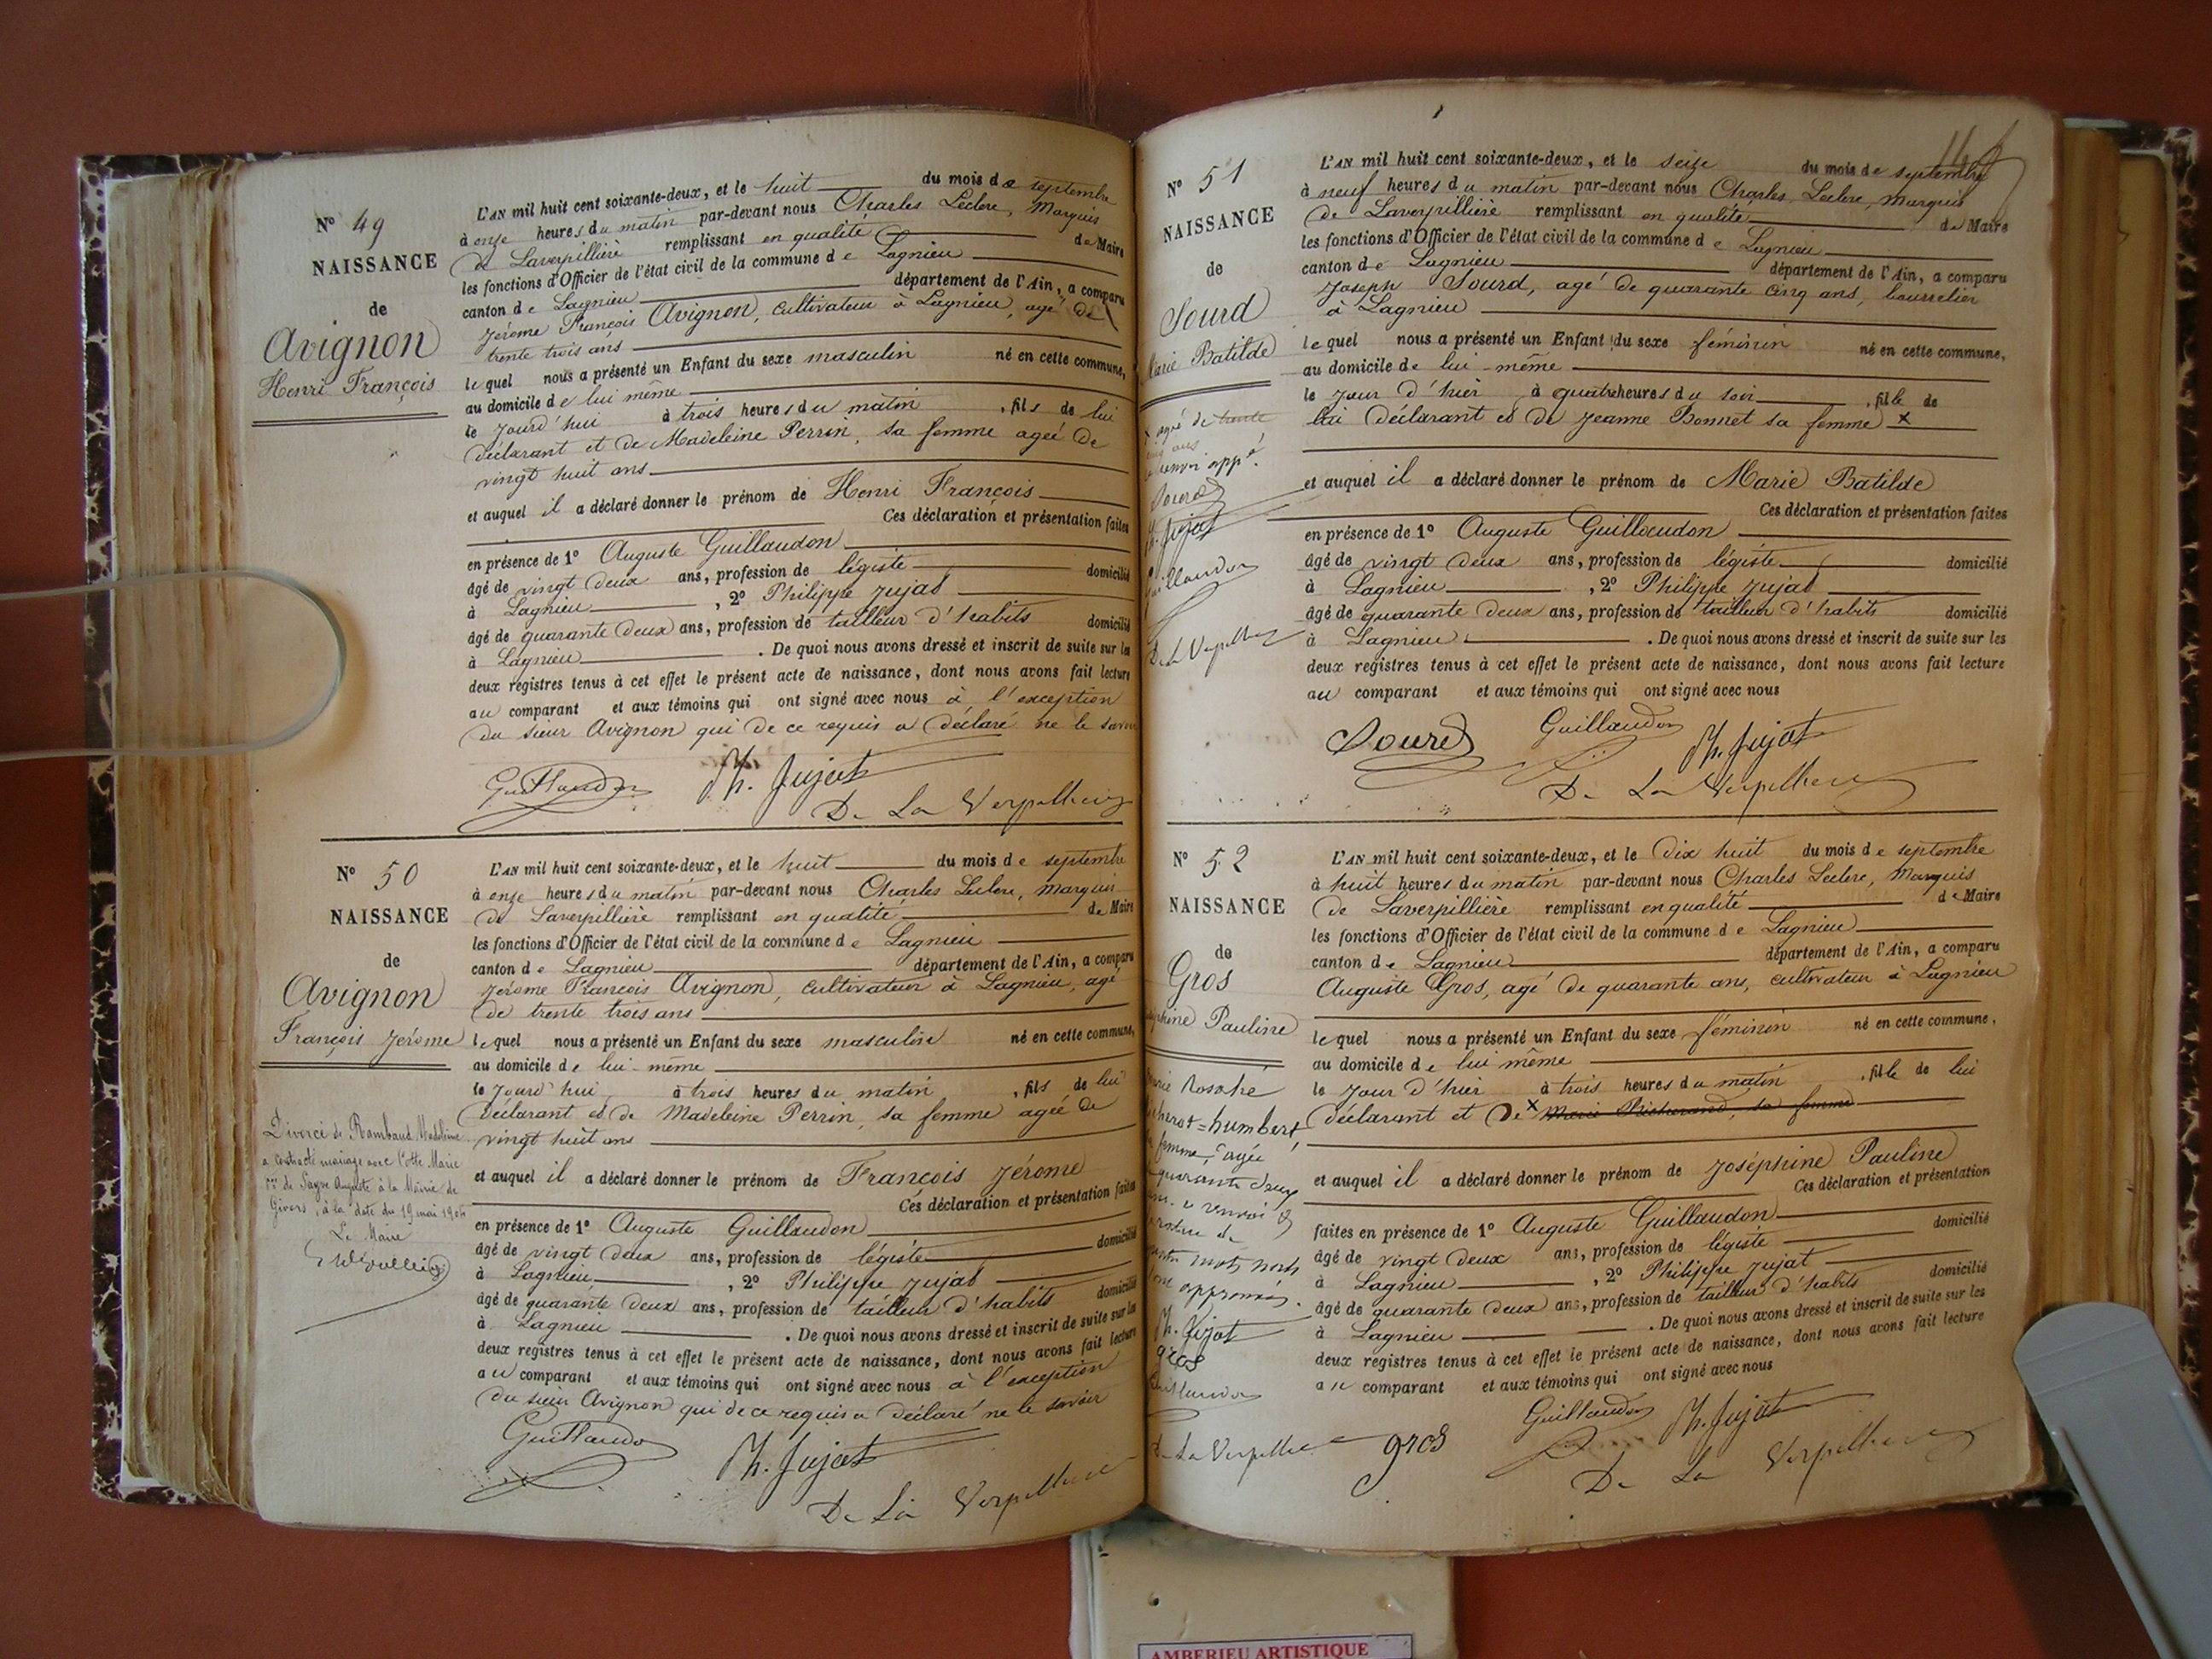 N° 49
NAISSANCE
de
Avignon
Henri François
L'AN mil huit cent soixante-deux, et le huit du mois de septembre
à onze heures du matin par-devant nous Charles Leclerc, Marquis
de Laverpillière remplissant en qualité de Maire
les fonctions d'Officier de l'état civil de la commune de Lagnieu
canton de Lagnieu département de l'Ain, a comparu
Jérome François Avignon, cultivateur à Lagnieu, agé de
trente trois ans
lequel nous a présenté un Enfant du sexe masculin né en cette commune,
au domicile de lui même
le jourd'hui à trois heures du matin, fils de lui
déclarant et de Madeleine Perrin, sa femme ageé de
vingt huit ans
et auquel il a déclaré donner le prénom de Henri François
Ces déclaration et présentation faites
en présence de 1° Auguste Guillaudon
âgé de vingt deux ans, profession de légiste domicilié
à Lagnieu, 2° Philippe Jujat
âgé de quarante deux ans, profession de tailleur d'habits domicilié
à Lagnieu. De quoi nous avons dressé et inscrit de suite sur les
deux registres tenus à cet effet le présent acte de naissance, dont nous avons fait lecture
au comparant et aux témoins qui ont signé avec nous à l'exception
du sieur Avignon qui de ce requis a déclaré ne le savoir
Guillaudon Ph. Jujat
De La Verpilliere
N° 50
NAISSANCE
de
Avignon
François Jérome
Divorcé de Rambaud Madeleine
a contracté mariage avec Cotte Marie
Vve de Sayve Auguste à la Mairie de
Givors, à la date du 19 mai 1906
Le Maire
L'AN mil huit cent soixante-deux, et le huit du mois de septembre
à onze heures du matin par-devant nous Charles Leclerc, marquis
de Laverpillière remplissant en qualité de Maire
les fonctions d'Officier de l'état civil de la commune de Lagnieu
canton de Lagnieu département de l'Ain, a comparu
Jérome François Avignon, cultivateur à Lagnieu, agé
de trente trois ans
lequel nous a présenté un Enfant du sexe masculin né en cette commune,
au domicile de lui-même
le jourd'hui à trois heures du matin, fils de lui
déclarant et de Madeleine Perrin, sa femme ageé de
vingt huit ans
et auquel il a déclaré donner le prénom de François Jérome
Ces déclaration et présentation faites
en présence de 1° Auguste Guillaudon
âgé de vingt deux ans, profession de légiste domicilié
à Lagnieu, 2° Philippe Jujat
âgé de quarante deux ans, profession de tailleur d'habits domicilié
à Lagnieu. De quoi nous avons dressé et inscrit de suite sur les
deux registres tenus à cet effet le présent acte de naissance, dont nous avons fait lecture
au comparant et aux témoins qui ont signé avec nous à l'exception
du sieur Avignon qui de ce requis a déclaré ne le savoir
Guillaudon Ph. Jujat
De La Verpilliere
N° 51
NAISSANCE
de
Sourd
Marie Batilde
agé de trente
ans
renvoi appé
Sourd
Ph. Jujat
Guillaudon
De La Verpilliere
L'AN mil huit cent soixante-deux, et le seize du mois de septembre
à neuf heures du matin par-devant nous Charles Leclerc, marquis
de Laverpillière remplissant en qualité de Maire
les fonctions d'Officier de l'état civil de la commune de Lagnieu
canton de Lagnieu département de l'Ain, a comparu
Joseph Sourd, agé de quarante cinq ans, bourrelier
à Lagnieu
lequel nous a présenté un Enfant du sexe féminin né en cette commune,
au domicile de lui-même
le jour d'hier à quatre heures du soir, fille de
lui déclarant et de Jeanne Bonnet sa femme x
et auquel il a déclaré donner le prénom de Marie Batilde
Ces déclaration et présentation faites
en présence de 1° Auguste Guillaudon
âgé de vingt deux ans, profession de légiste domicilié
à Lagnieu, 2° Philippe Jujat
âgé de quarante deux ans, profession de tailleur d'habits domicilié
à Lagnieu. De quoi nous avons dressé et inscrit de suite sur les
deux registres tenus à cet effet le présent acte de naissance, dont nous avons fait lecture
au comparant et aux témoins qui ont signé avec nous
Sourd Guillaudon Ph. Jujat
De La Verpilliere
N° 52
NAISSANCE
de
Gros
Joséphine Pauline
humbert,
femme, agée
quarante deux
ans. renvoi &
rature de
mots nuls
approuvés.
Ph. Jujat
gros
Guillaudon
De La Verpilliere
L'AN mil huit cent soixante-deux, et le dix huit du mois de septembre
à huit heures du matin par-devant nous Charles Leclerc, Marquis
de Laverpillière remplissant en qualité de Maire
les fonctions d'Officier de l'état civil de la commune de Lagnieu
canton de Lagnieu département de l'Ain, a comparu
Auguste Gros, agé de quarante ans, cultivateur à Lagnieu
lequel nous a présenté un Enfant du sexe féminin né en cette commune,
au domicile de lui même
le jour d'hier à trois heures du matin, fille de lui
déclarant et de x Marie Richerand, sa femme
et auquel il a déclaré donner le prénom de Joséphine Pauline
Ces déclaration et présentation
faites en présence de 1° Auguste Guillaudon
âgé de vingt deux ans, profession de légiste domicilié
à Lagnieu, 2° Philippe Jujat
âgé de quarante deux ans, profession de tailleur d'habits domicilié
à Lagnieu. De quoi nous avons dressé et inscrit de suite sur les
deux registres tenus à cet effet le présent acte de naissance, dont nous avons fait lecture
au comparant et aux témoins qui ont signé avec nous
gros Guillaudon Ph. Jujat
De La Verpilliere
AMBERIEU ARTISTIQUE